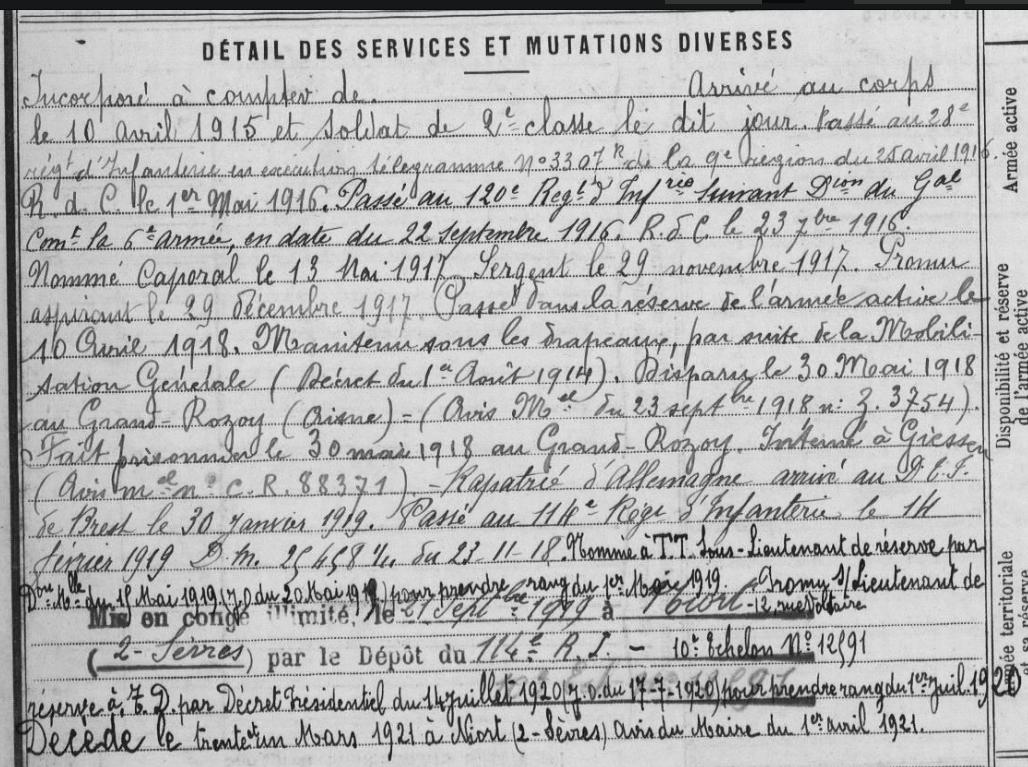 DÉTAIL DES SERVICES ET MUTATIONS DIVERSES
Incorporé à compter de. Arrivé au corps
le 10 avril 1915 et soldat de 2e classe le dit jour. Passé au 28e
régt d'Infanterie en exécution télégramme No 3307 R de la 9e région du 25 avril 1916.
R. d. C. le 1er Mai 1916. Passé au 120e Regt d'Infrie suivant Dion du Gal
Comt la 6e armée, en date du 22 Septembre 1916. R. d C. le 23 7bre 1916.
Nommé Caporal le 13 Mai 1917. Sergent le 29 novembre 1917. Promu
aspirant le 29 décembre 1917. Passé dans la réserve de l'armée active le
10 Avril 1918. Maintenu sous les drapeaux, par suite de la Mobili-
sation Générale (Décret du 1er Août 1914). Disparu le 30 Mai 1918
au Grand-Rozoy (Aisne) = (Avis Mel du 23 septbre 1918 n: Z. 3754).
Fait prisonnier le 30 mai 1918 au Grand-Rozoy. Interné à Giessen
(Avis mel no C.R. 88371) - Rapatrié d'Allemagne arrivé au
de Brest le 30 Janvier 1919. Passé au 114e Régt d'Infanterie le 14
fevrier 1919 D.M. 25458 1/11 du 23-11-18. Nommé à T.T. Sous-Lieutenant de réserve par
Don Mlle du 15 Mai 1919 (J.O du 20 Mai 1919) pour prendre rang du 1er Mai 1919. Promu S/Lieutenant de
Mis en congé illimité, le 21 Septbre 1919 à Niort - 12, rue Voltaire
(2-Sèvres) par le Dépôt du 114e R.I. - 10e Echelon No 12591
réserve à T.D. par Décret Présidentiel du 14 Juillet 1920 (J.O. du 17-7-1920) pour prendre rang du 1er Juil. 1920
Décédé le trente et un Mars 1921 à Niort (2-Sèvres) avis du Maire du 1er avril 1921.
Armée active
Disponibilité et réserve
de l'armée active
territoriale
réserve